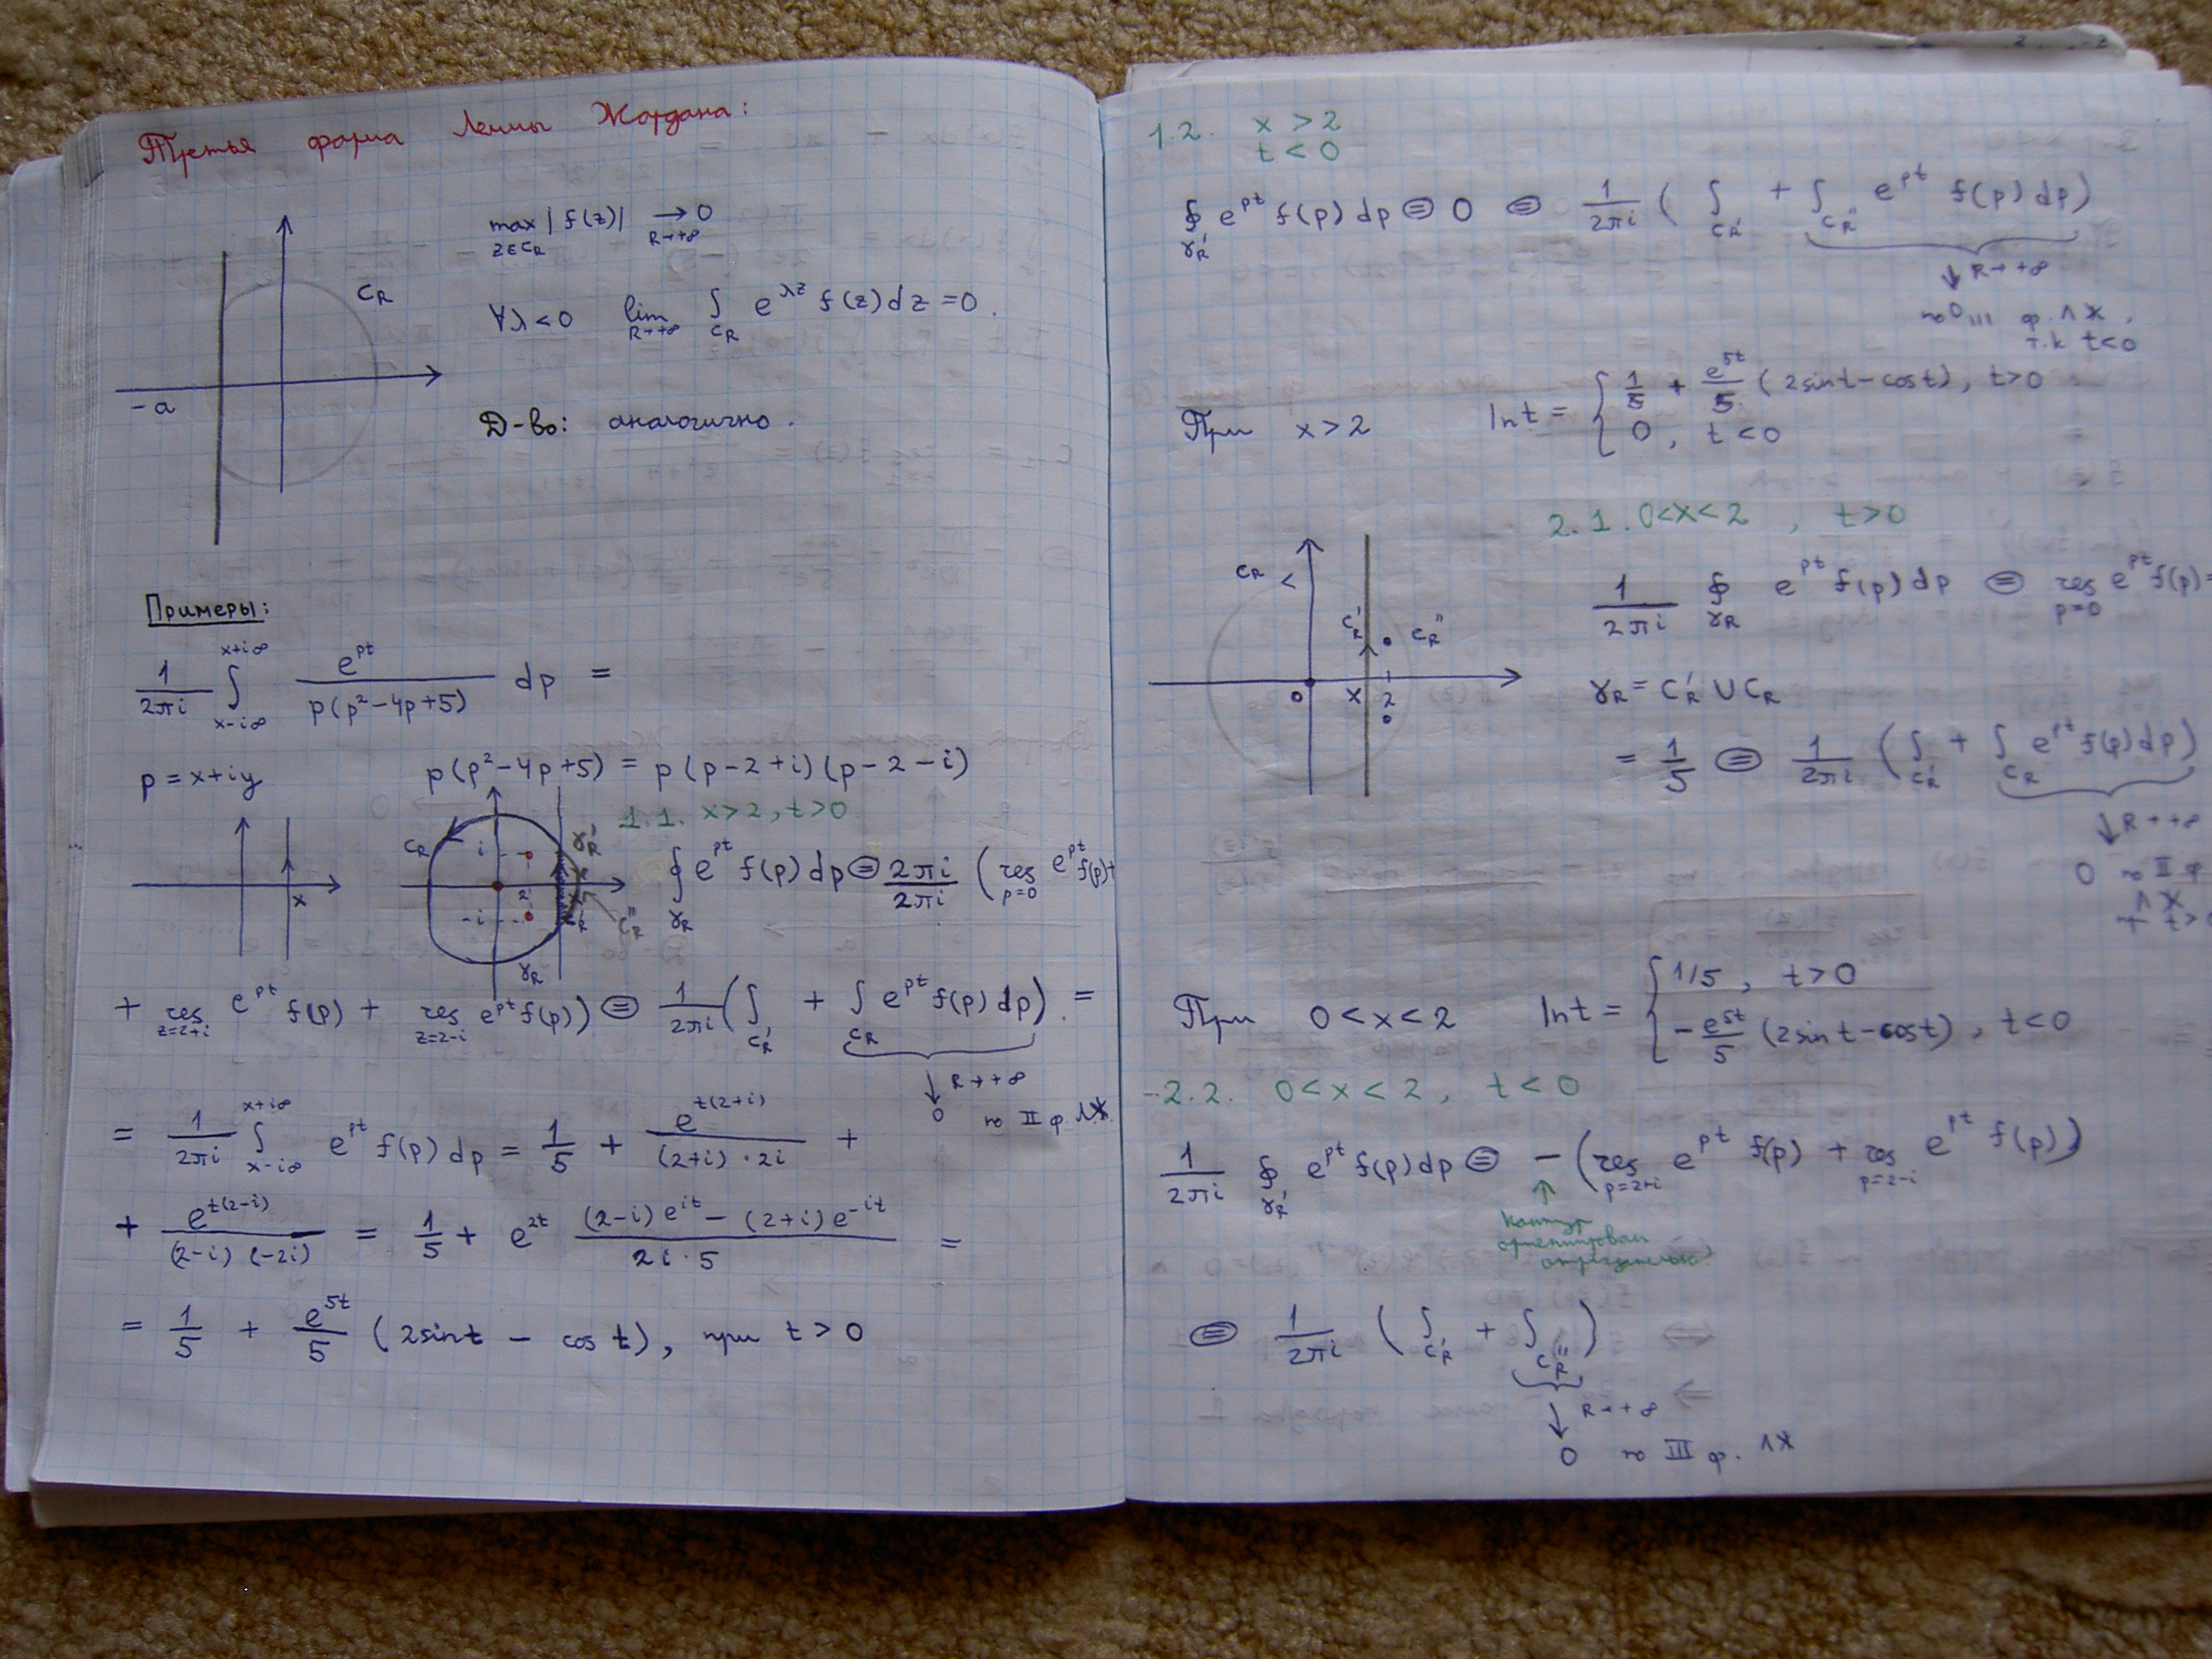 Третья форма Леммы Жордана:
max |f(z)| → 0
z∈C_R R→+∞
C_R
∀λ<0 lim ∫ e^{λz} f(z) dz = 0.
R→+∞ C_R
-a
Д-во: аналогично.
Примеры:
1/(2πi) ∫_{x-i∞}^{x+i∞} e^{pt} / (p(p²-4p+5)) dp =
p = x+iy p(p²-4p+5) = p(p-2+i)(p-2-i)
1.1. x>2, t>0
x
C_R i 2 -i γ_R' C_R' C_R'' γ_R
∮_{γ_R} e^{pt} f(p) dp ⊜ 2πi/2πi (res_{p=0} e^{pt} f(p)+
+ res_{z=2+i} e^{pt} f(p) + res_{z=2-i} e^{pt} f(p)) ⊜ 1/(2πi) (∫_{C_R'} + ∫_{C_R} e^{pt} f(p) dp) =
↓ R→+∞
0 по II ф. ЛЖ.
= 1/(2πi) ∫_{x-i∞}^{x+i∞} e^{pt} f(p) dp = 1/5 + e^{t(2+i)} / ((2+i)·2i) +
+ e^{t(2-i)} / ((2-i)(-2i)) = 1/5 + e^{2t} ((2-i)e^{it} - (2+i)e^{-it}) / (2i·5) =
= 1/5 + e^{5t}/5 (2sin t - cos t), при t > 0
1.2. x > 2
t < 0
∮_{γ_R'} e^{pt} f(p) dp ⊜ 0 ⊜ 1/(2πi) (∫_{C_R'} + ∫_{C_R''} e^{pt} f(p) dp)
↓ R→+∞
0 по III ф. ЛЖ,
т.к t<0
При x > 2 Int = { 1/5 + e^{5t}/5 (2sin t - cos t), t>0
0, t < 0
2.1. 0<x<2, t>0
C_R C_R' C_R'' 0 x 2
1/(2πi) ∮_{γ_R} e^{pt} f(p) dp ⊜ res_{p=0} e^{pt} f(p) =
γ_R = C_R' ∪ C_R
= 1/5 ⊜ 1/(2πi) (∫_{C_R'} + ∫_{C_R} e^{pt} f(p) dp)
↓ R→+∞
0 по II ф
ЛЖ
При 0 < x < 2 Int = { 1/5, t > 0
-e^{5t}/5 (2sin t - cos t), t < 0
2.2. 0 < x < 2, t < 0
1/(2πi) ∮_{γ_R'} e^{pt} f(p) dp ⊜ - (res_{p=2+i} e^{pt} f(p) + res_{p=2-i} e^{pt} f(p))
↑
контур
ориентирован
отрицательно
⊜ 1/(2πi) (∫_{C_R'} + ∫_{C_R''})
↓ R→+∞
0 по III ф. ЛЖ